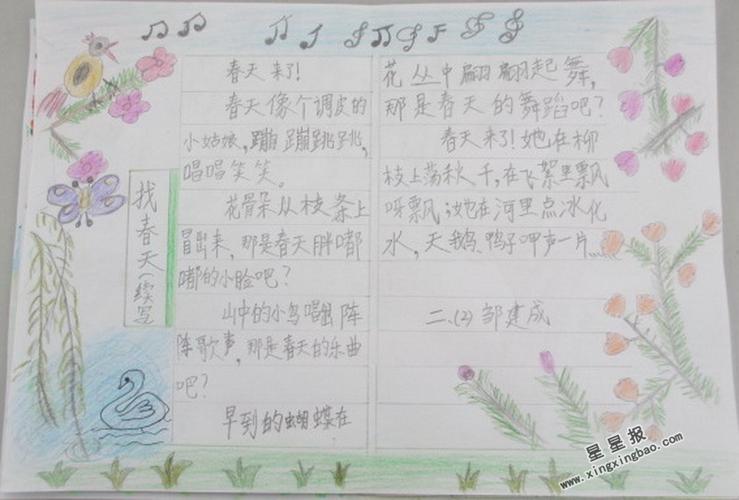 找春天(续写
春天来了!
春天像个调皮的
小姑娘,蹦蹦跳跳,
唱唱笑笑。
花骨朵从枝条上
冒出来,那是春天胖嘟
嘟的小脸吧?
山中的小鸟唱出阵
阵歌声,那是春天的乐曲
吧?
早到的蝴蝶在
花丛中翩翩起舞,
那是春天的舞蹈吧?
春天来了!她在柳
枝上荡秋千,在飞絮里飘
呀飘;她在河里点冰化
水,天鹅、鸭子呷声一片……
二、(2) 邹建成
星星报
www.xingxingbao.com